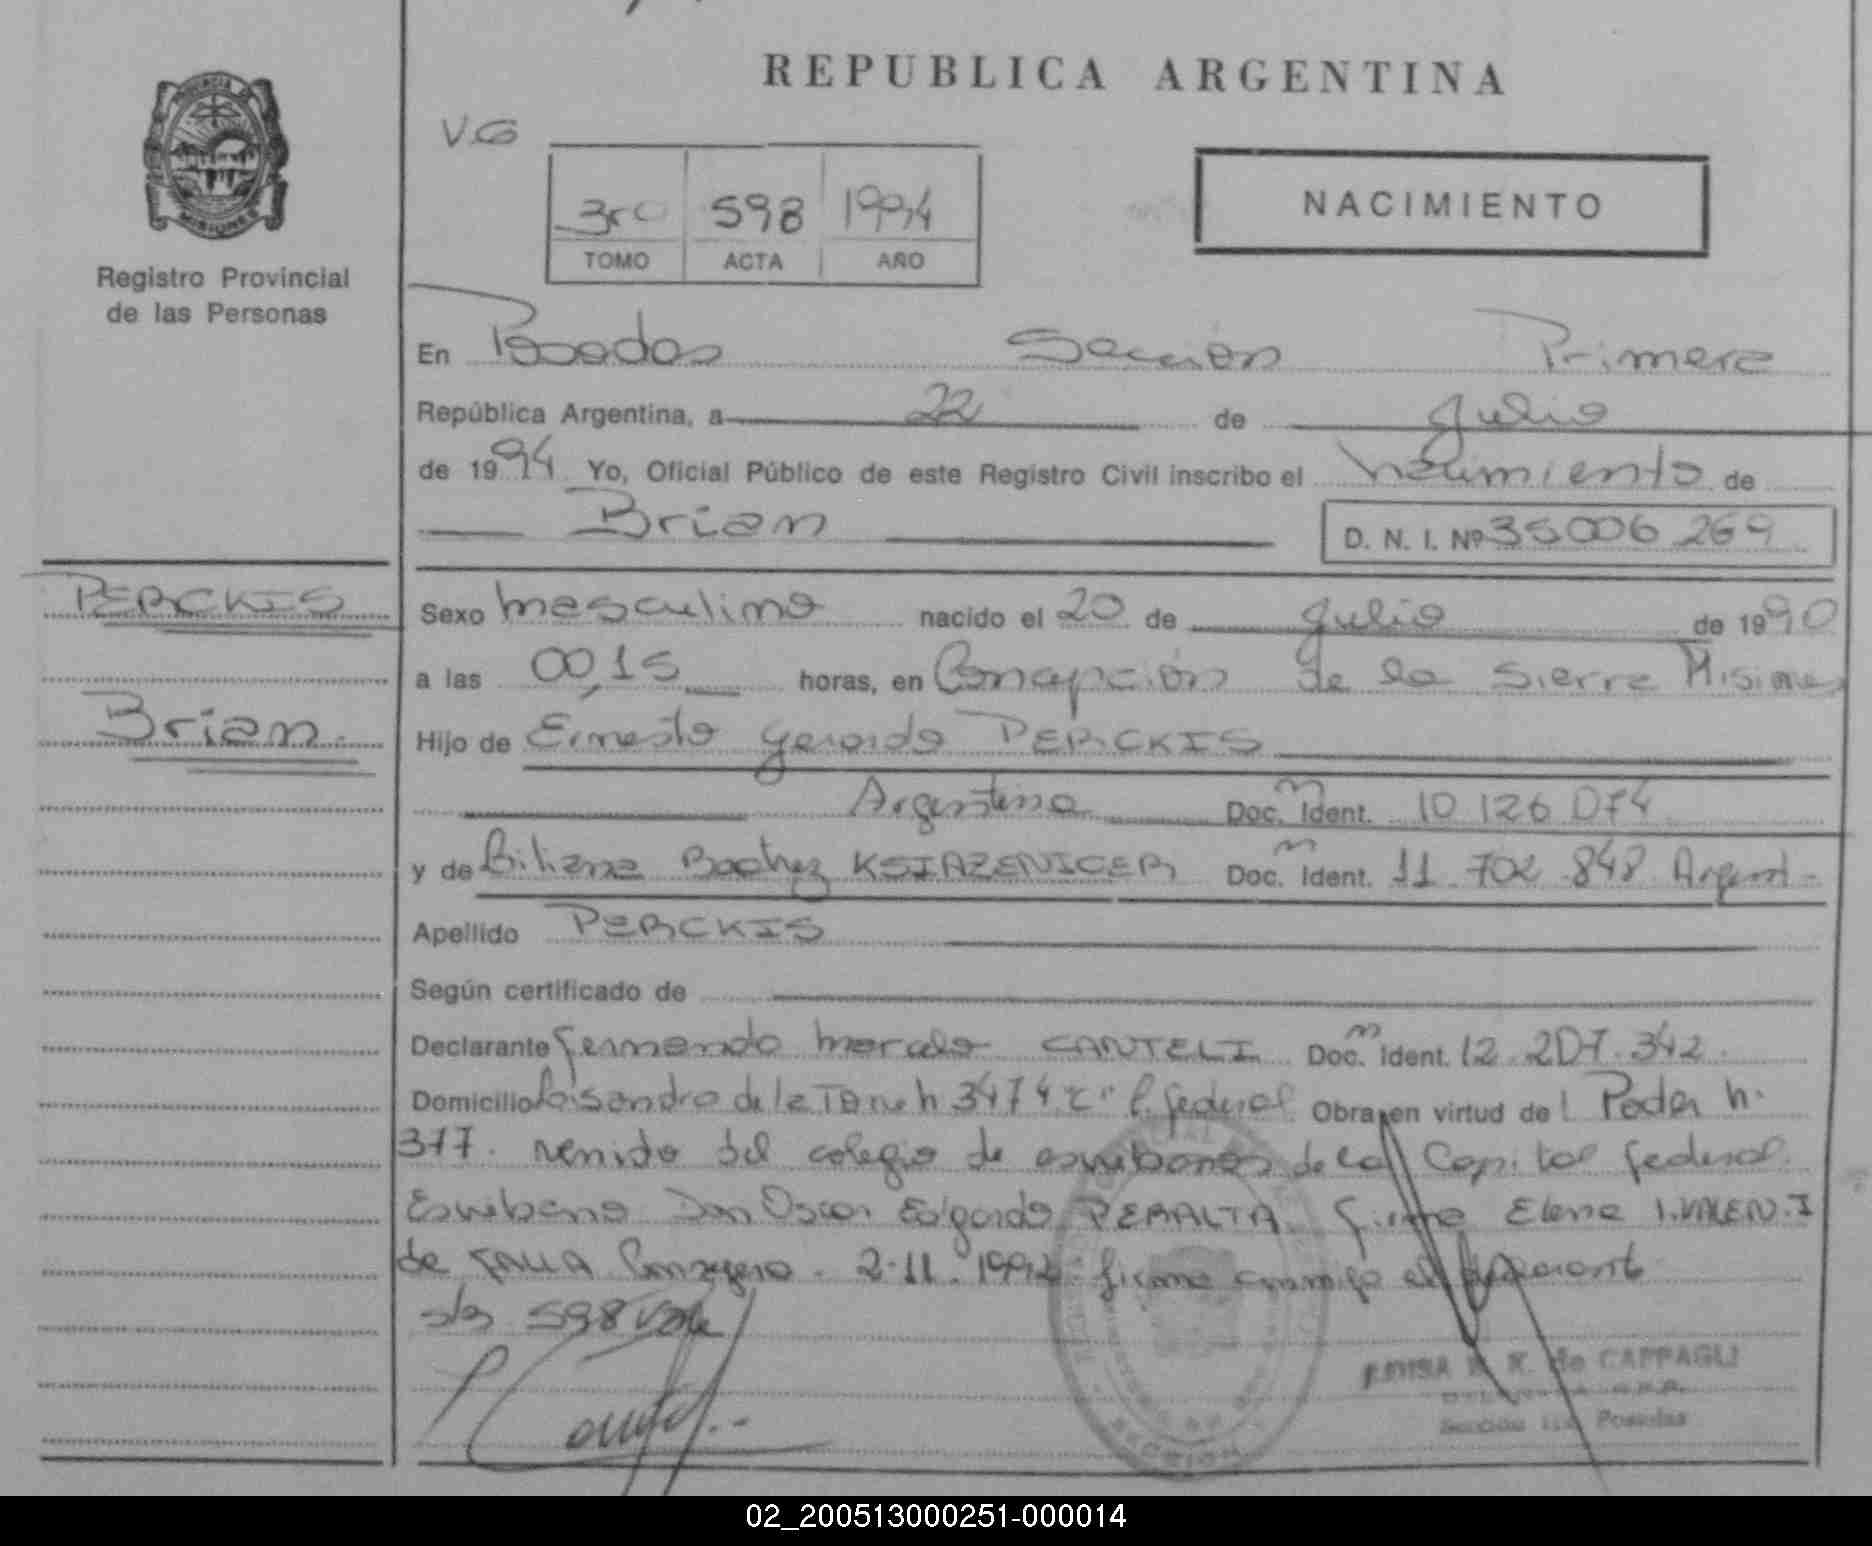 REPUBLICA ARGENTINA
PROVINCIA DE
MISIONES
Registro Provincial
de las Personas
V.G
3ro 598 1994
TOMO ACTA AÑO
NACIMIENTO
En Posadas Sección Primera
República Argentina, a 22 de Julio
de 1994 Yo, Oficial Público de este Registro Civil inscribo el nacimiento de
Brian D. N. I. Nº 35006 269
PERCKIS
Sexo masculino nacido el 20 de Julio de 1990
a las 00,15 horas, en Concepción de la Sierra Misiones
Brian.
Hijo de Ernesto Gerardo PERCKIS
Argentina Doc. m Ident. 10 126 074
y de Liliana Beatriz KSIAZENICER Doc. m Ident. 11.702.848 Argent.
Apellido PERCKIS
Según certificado de
Declarante Fernando Marcelo CANTELI Doc. m Ident. 12.207.342.
Domicilio Lisandro de la Torre n 3474 "C" C. Federal Obra en virtud de Poder n.
377. venido del colegio de escribanos de la Capital Federal.
Escribano Don Oscar Edgardo PERALTA. Firma Elena I. VALEN.I
de FALLA Consejero. 2.11.1992. firma conmigo el declarante
s/b 598 Vale
de CAPPAGLI
Sección 1ra. Posadas
02_200513000251-000014